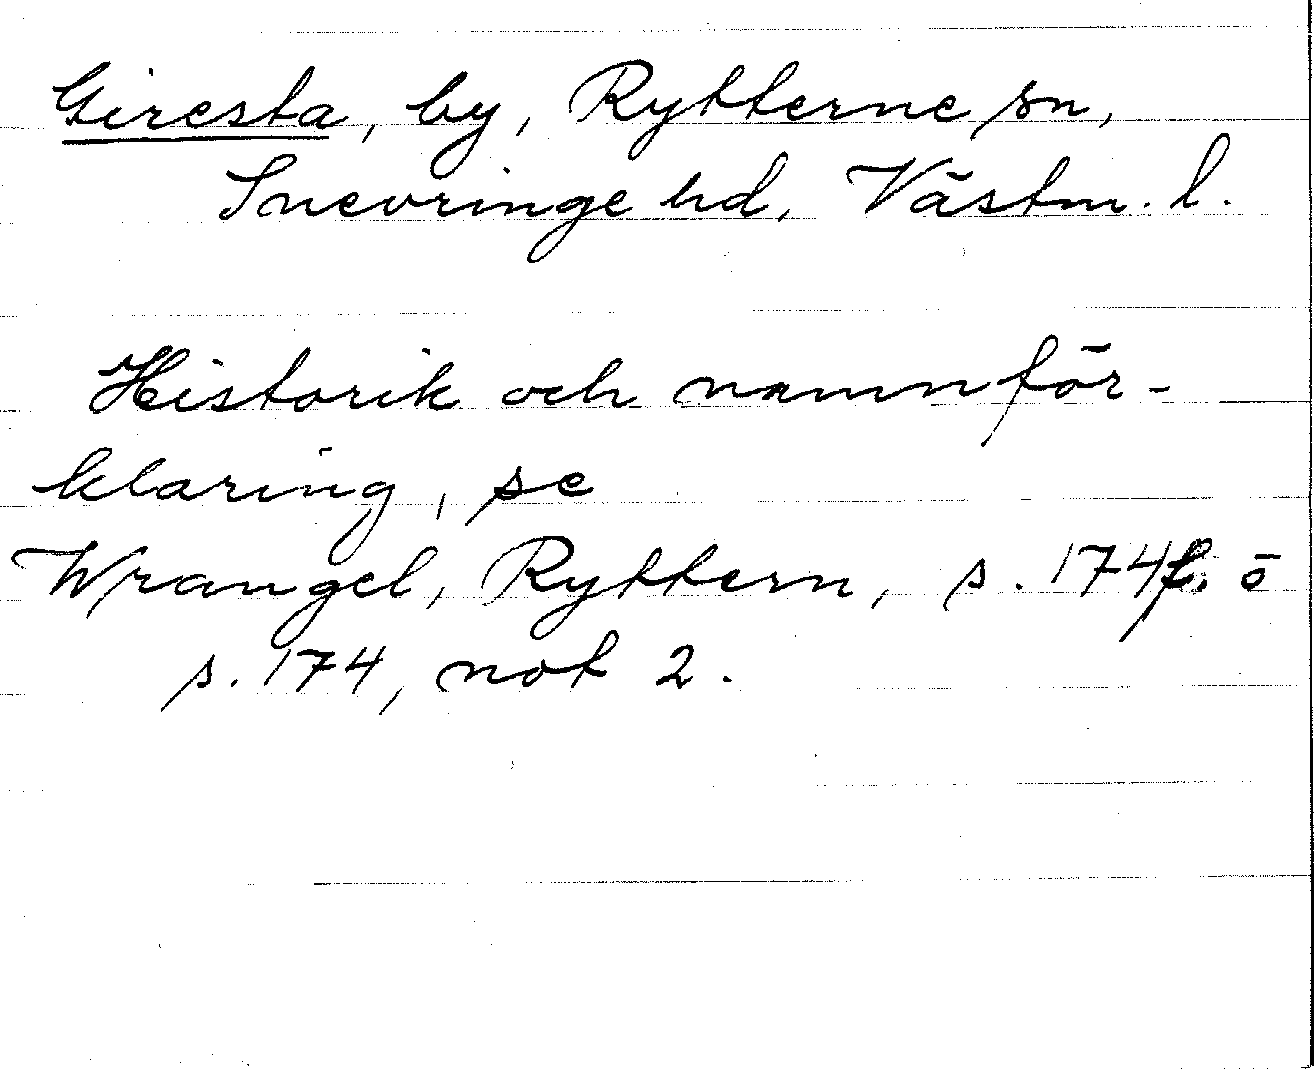 Giresta, by, Rytterne sn,
Snevringe hd, Västm. l.
Historik och namnför-
klaring, se
Wrangel, Ryttern, s. 174f. ö
s. 174, not 2.